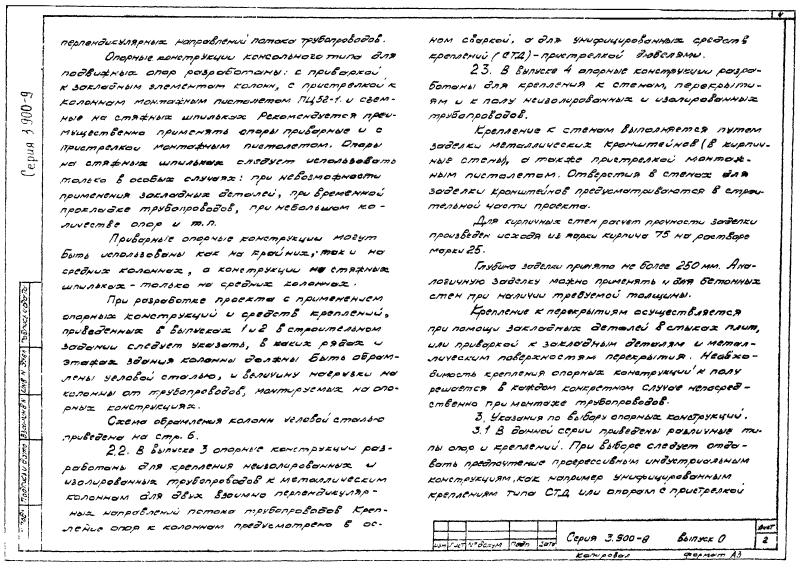 4
Серия 3.900-9
перпендикулярных направлений потока трубопроводов.
Опорные конструкции консольного типа для
подвижных опор разработаны: с приваркой
к закладным элементам колонн, с пристрелкой к
колоннам монтажным пистолетом ПЦ52-1. и съем-
ные на стяжных шпильках Рекомендуется преи-
мущественно применять опоры приварные и с
пристрелкой монтажным пистолетом. Опоры
на стяжных шпильках следует использовать
только в особых случаях: при невозможности
применения закладных деталей, при временной
прокладке трубопроводов, при небольшом ко-
личестве опор и т.п.
Приварные опорные конструкции могут
быть использованы как на крайних, так и на
средних колоннах, а конструкции на стяжных
шпильках - только на средних колоннах.
При разработке проекта с применением
опорных конструкций и средств креплений,
приведенных в выпусках 1 и 2 в строительном
задании следует указать, в каких рядах и
этажах здания колонны должны быть обрам-
лены угловой сталью, и величину нагрузки на
колонны от трубопроводов, монтируемых на опо-
рных конструкциях.
Схема обрамления колонн угловой сталью
приведена на стр. 6.
2.2. В выпуске 3 опорные конструкции раз-
работаны для крепления неизолированных и
изолированных трубопроводов к металлическим
колоннам для двух взаимно перпендикуляр-
ных направлений потока трубопроводов Креп-
ление опор к колоннам предусмотрено в ос-
ном сваркой, а для унифицированных средств
креплений (СТД) - пристрелкой дюбелями.
2.3. В выпуске 4 опорные конструкции разра-
ботаны для крепления к стенам, перекрыти-
ям и к полу неизолированных и изолированных
трубопроводов.
Крепление к стенам выполняется путем
заделки металлических кронштейнов (в кирпич-
ные стены), а также пристрелкой монтаж-
ным пистолетом. Отверстия в стенах для
заделки кронштейнов предусматриваются в строи-
тельной части проекта.
Для кирпичных стен расчет прочности заделки
произведен исходя из марки кирпича 75 на растворе
марки 25.
Глубина заделки принята не более 250 мм. Ана-
логичную заделку можно применять и для бетонных
стен при наличии требуемой толщины.
Крепление к перекрытиям осуществляется
при помощи закладных деталей в стыках плит,
или приваркой к закладным деталям и метал-
лическим поверхностям перекрытия. Необхо-
димость крепления опорных конструкций к полу
решается в каждом конкретном случае непосред-
ственно при монтаже трубопроводов.
3. Указания по выбору опорных конструкций.
3.1 В данной серии приведены различные ти-
пы опор и креплений. При выборе следует отда-
вать предпочтение прогрессивным индустриальным
конструкциям, как например унифицированным
креплениям типа СТД или опорам с пристрелкой
Изм Лист № докум Подп Дата
Серия 3.900-9 выпуск 0
Лист
2
Копировал Формат А3